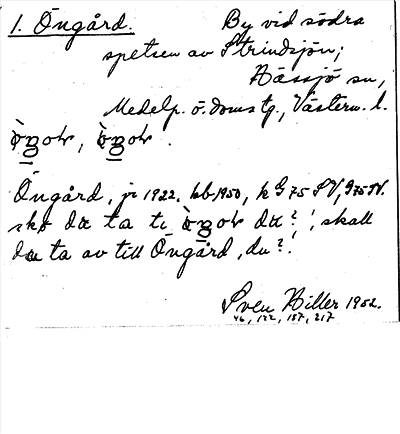 1. Öngård. By vid södra
spetsen av Strindsjön;
Hässjö sn,
Medelp. ö. doms tg., Västern. l.
Öngård, jr 1922, hb 1950, k G 75 SV, 975 SV.
skɵ dɷ ta ti
dɷ?', 'skall
du ta av till Öngård, du?'
Sven Hiller 1952.
46, 122, 157, 217